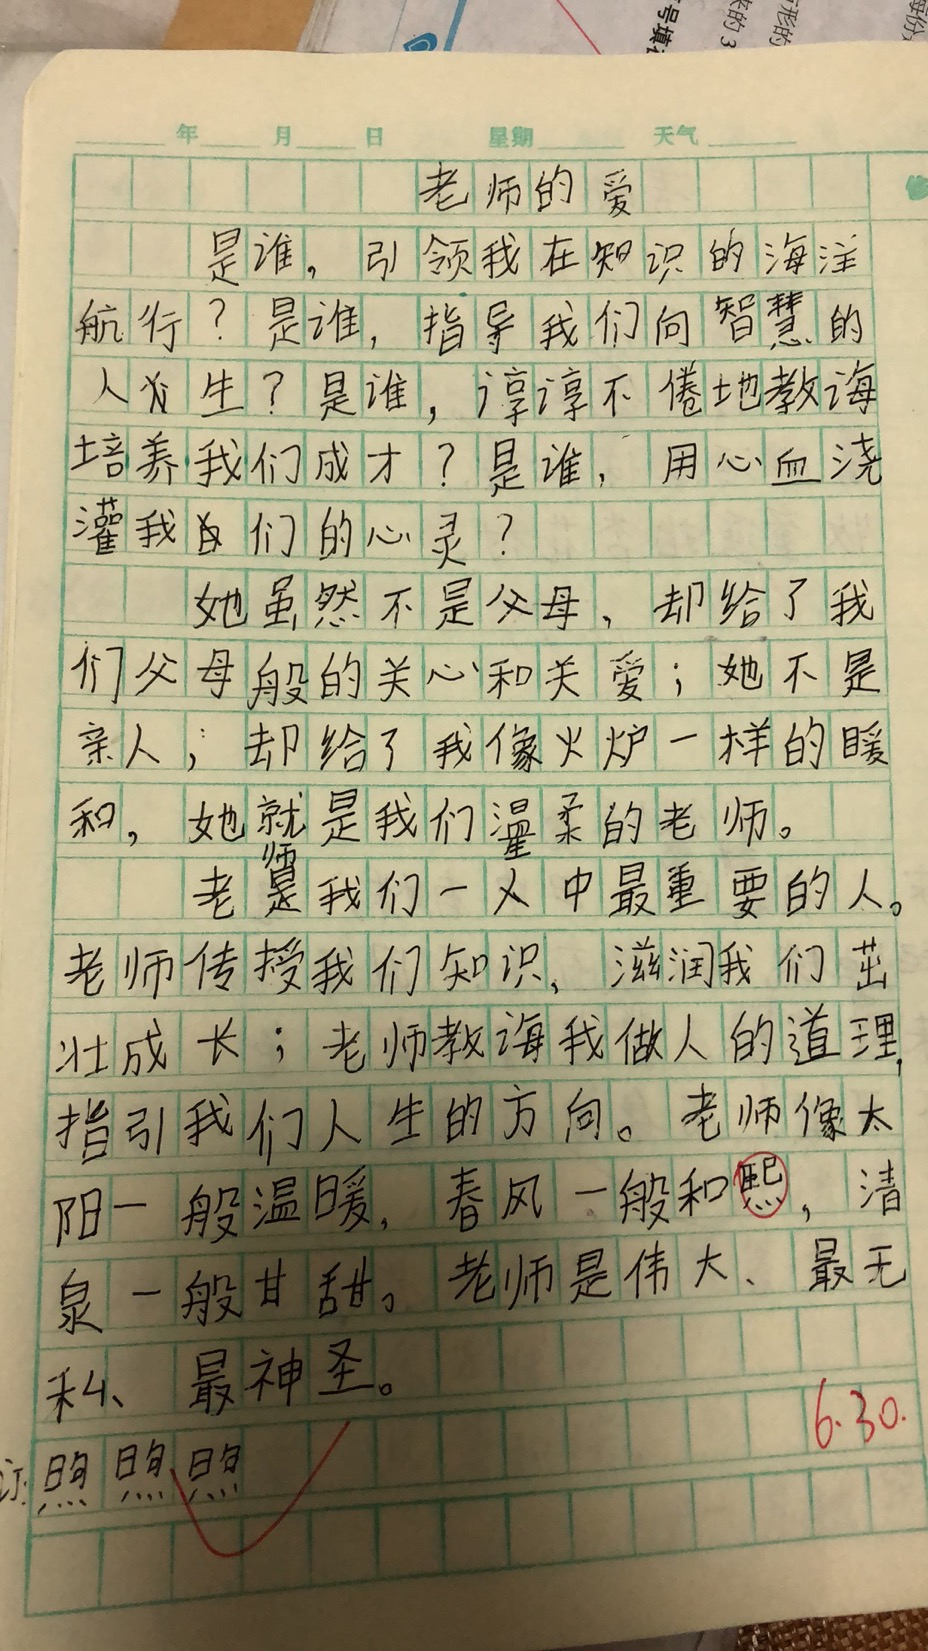 号填
求的3
形的
每份
年 月 日 星期 天气
老师的爱
是谁，引领我在知识的海洋
航行？是谁，指导我们向智慧的
人生？是谁，谆谆不倦地教诲
培养我们成才？是谁，用心血浇
灌我们的心灵？
她虽然不是父母，却给了我
们父母般的关心和关爱；她不是
亲人；却给了我像火炉一样的暖
和，她就是我们温柔的老师。
老师是我们一人中最重要的人。
老师传授我们知识，滋润我们茁
壮成长；老师教诲我做人的道理，
指引我们人生的方向。老师像太
阳一般温暖，春风一般和熙，清
泉一般甘甜。老师是伟大、最无
私、最神圣。
6.30.
订：煦 煦 煦